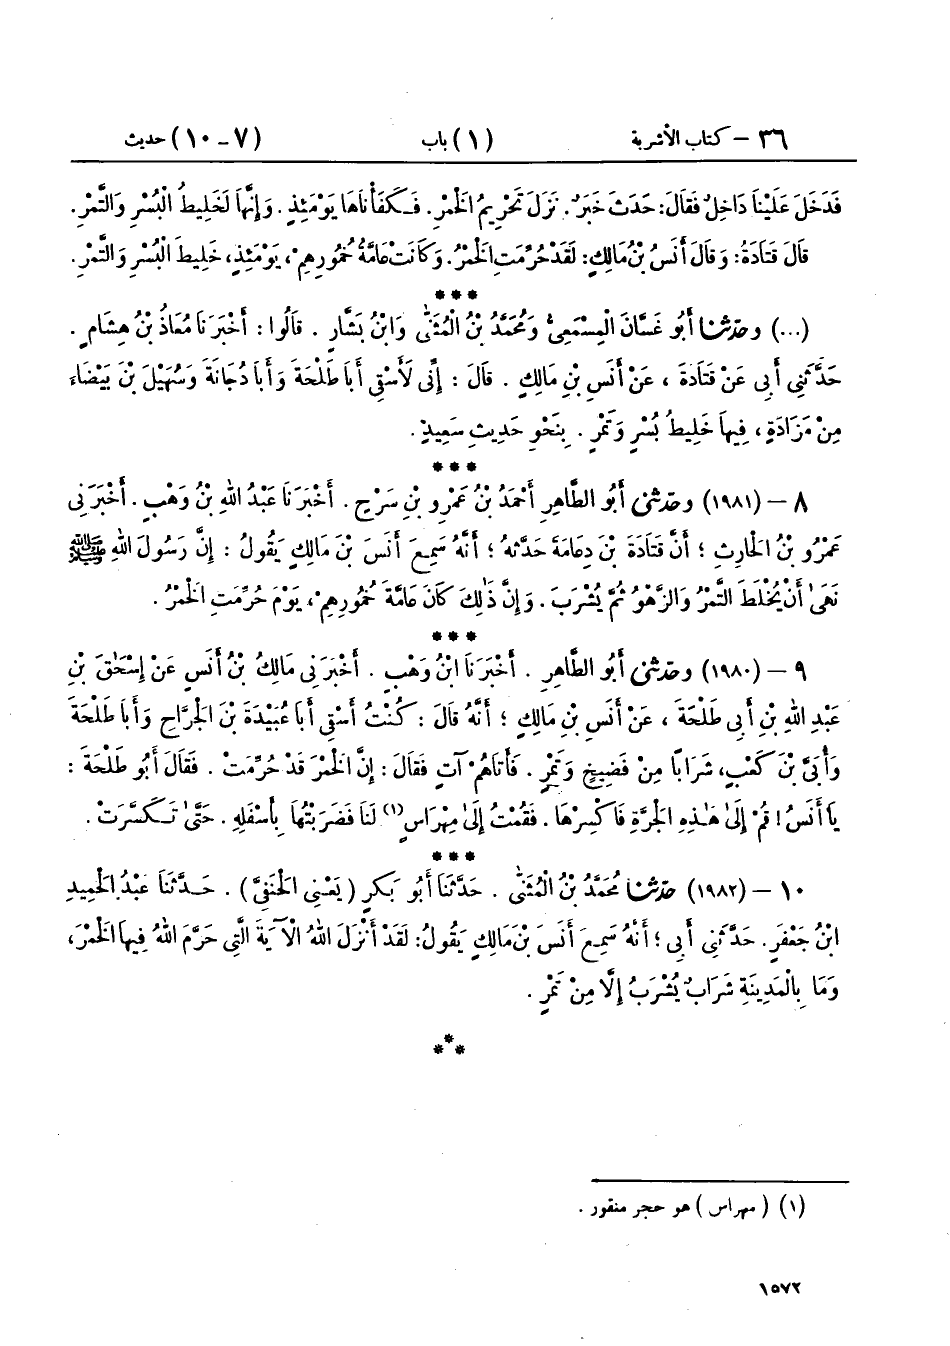 ٣٦ – كتاب الأشربة (١) باب (٧ – ١٠) حديث
فَدَخَلَ عَلَيْنَا دَاخِلٌ فَقَالَ: حَدَثَ خَبَرٌ. نَزَلَ تَحْرِيمُ الْخَمْرِ. فَكَفَأْنَاهَا يَوْمَئِذٍ. وَإِنَّهَا لَخَلِيطُ الْبُسْرِ وَالتَّمْرِ.
قَالَ قَتَادَةُ: وَقَالَ أَنَسُ بْنُ مَالِكٍ: لَقَدْ حُرِّمَتِ الْخَمْرُ. وَكَانَتْ عَامَّةُ خُمُورِهِمْ، يَوْمَئِذٍ، خَلِيطَ الْبُسْرِ وَالتَّمْرِ.
***
(...) وحَدَّثَنَا أَبُو غَسَّانَ الْمِسْمَعِيُّ وَمُحَمَّدُ بْنُ الْمُثَنَّى وَابْنُ بَشَّارٍ. قَالُوا: أَخْبَرَنَا مُعَاذُ بْنُ هِشَامٍ.
حَدَّثَنِي أَبِي عَنْ قَتَادَةَ، عَنْ أَنَسِ بْنِ مَالِكٍ. قَالَ: إِنِّي لَأَسْقِي أَبَا طَلْحَةَ وَأَبَا دُجَانَةَ وَسُهَيْلَ بْنَ بَيْضَاءَ
مِنْ مَزَادَةٍ، فِيهَا خَلِيطُ بُسْرٍ وَتَمْرٍ. بِنَحْوِ حَدِيثِ سَعِيدٍ.
***
٨ – (١٩٨١) وحَدَّثَنِي أَبُو الطَّاهِرِ أَحْمَدُ بْنُ عَمْرِو بْنِ سَرْحٍ. أَخْبَرَنَا عَبْدُ اللهِ بْنُ وَهْبٍ. أَخْبَرَنِي
عَمْرُو بْنُ الْحَارِثِ؛ أَنَّ قَتَادَةَ بْنَ دِعَامَةَ حَدَّثَهُ؛ أَنَّهُ سَمِعَ أَنَسَ بْنَ مَالِكٍ يَقُولُ: إِنَّ رَسُولَ اللهِ ﷺ
نَهَى أَنْ يُخْلَطَ التَّمْرُ وَالزَّهْوُ ثُمَّ يُشْرَبَ. وَإِنَّ ذَلِكَ كَانَ عَامَّةَ خُمُورِهِمْ، يَوْمَ حُرِّمَتِ الْخَمْرُ.
***
٩ – (١٩٨٠) وحَدَّثَنِي أَبُو الطَّاهِرِ. أَخْبَرَنَا ابْنُ وَهْبٍ. أَخْبَرَنِي مَالِكُ بْنُ أَنَسٍ عَنْ إِسْحَقَ بْنِ
عَبْدِ اللهِ بْنِ أَبِي طَلْحَةَ، عَنْ أَنَسِ بْنِ مَالِكٍ؛ أَنَّهُ قَالَ: كُنْتُ أَسْقِي أَبَا عُبَيْدَةَ بْنَ الْجَرَّاحِ وَأَبَا طَلْحَةَ
وَأُبَيَّ بْنَ كَعْبٍ، شَرَابًا مِنْ فَضِيخٍ وَتَمْرٍ. فَأَتَاهُمْ آتٍ فَقَالَ: إِنَّ الْخَمْرَ قَدْ حُرِّمَتْ. فَقَالَ أَبُو طَلْحَةَ:
يَا أَنَسُ! قُمْ إِلَى هَذِهِ الْجَرَّةِ فَاكْسِرْهَا. فَقُمْتُ إِلَى مِهْرَاسٍ(١) لَنَا فَضَرَبْتُهَا بِأَسْفَلِهِ. حَتَّى تَكَسَّرَتْ.
***
١٠ – (١٩٨٢) حَدَّثَنَا مُحَمَّدُ بْنُ الْمُثَنَّى. حَدَّثَنَا أَبُو بَكْرٍ (يَعْنِي الْحَنَفِيَّ). حَدَّثَنَا عَبْدُ الْحَمِيدِ
ابْنُ جَعْفَرٍ. حَدَّثَنِي أَبِي؛ أَنَّهُ سَمِعَ أَنَسَ بْنَ مَالِكٍ يَقُولُ: لَقَدْ أَنْزَلَ اللهُ الْآيَةَ الَّتِي حَرَّمَ اللهُ فِيهَا الْخَمْرَ،
وَمَا بِالْمَدِينَةِ شَرَابٌ يُشْرَبُ إِلَّا مِنْ تَمْرٍ.
***
(١) (مهراس) هو حجر منقور.
١٥٧٢